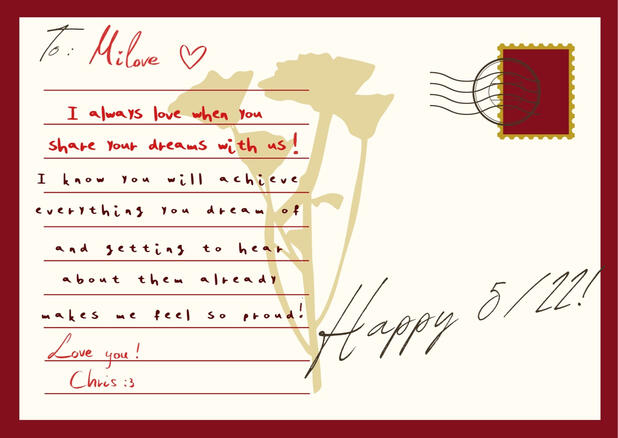 To: Milove ♡
I always love when you
share your dreams with us!
I know you will achieve
everything you dream of
and getting to hear
about them already
makes me feel so proud!
Love you!
Chris :3
Happy 5/22!